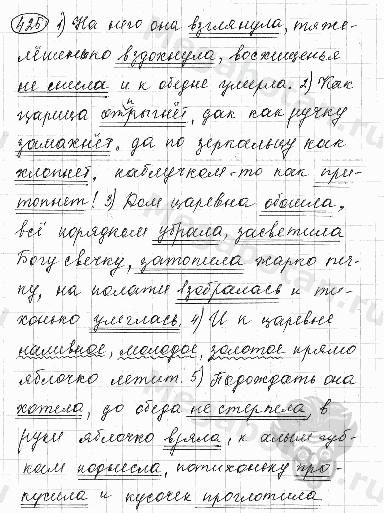 425 1) На него она взглянула, тяже-
лёшенько вздохнула, восхищенья
не снесла и к обедне умерла. 2) Как
царица отпрыгнёт, да как ручку
замахнёт, да по зеркальцу как
хлопнет, каблучком-то как при-
топнет! 3) Дом царевна обошла,
всё порядком убрала, засветила
Богу свечку, затопила жарко печ-
ку, на полати взобралась и ти-
хонько улеглась. 4) И к царевне
наливное, молодое, золотое прямо
яблочко летит. 5) Подождать она
хотела, до обеда не стерпела, в
руки яблочко взяла, к алым губ-
кам поднесла, потихоньку про-
кусила и кусочек проглотила